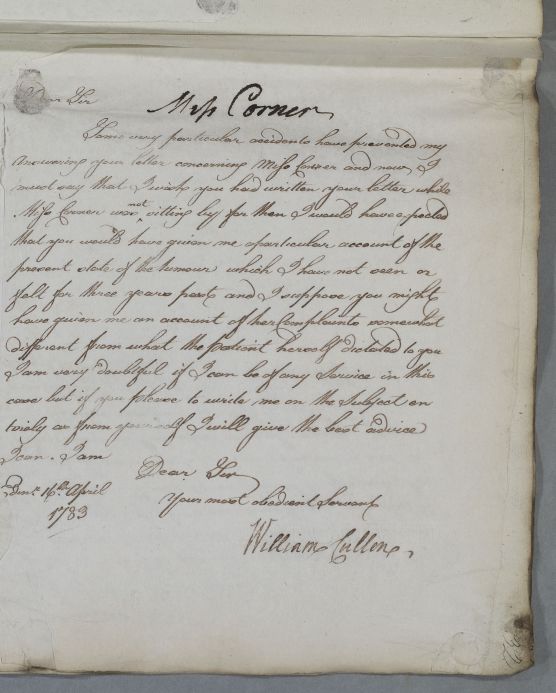 Dear Sir
Miss Corner
Some very particular accidents have prevented my
answering your letter concerning Miss Corner and now I
must say that I wish you had written your letter while
Miss Corner was not sitting by for then I would have expected
that you would have given me a particular account of the
present state of the tumour which I have not seen or
felt for three years past and I suppose you might
have given me an account of her Complaints somewhat
different from what the patient herself dictated to you
I am very doubtful if I can be of any Service in this
case but if you please to write me on the Subject en
tirely as from yourself I will give the best advice
I can. I am
Dear Sir
Edinr. 16th. April
Your most obedient Servant
1783
William Cullen